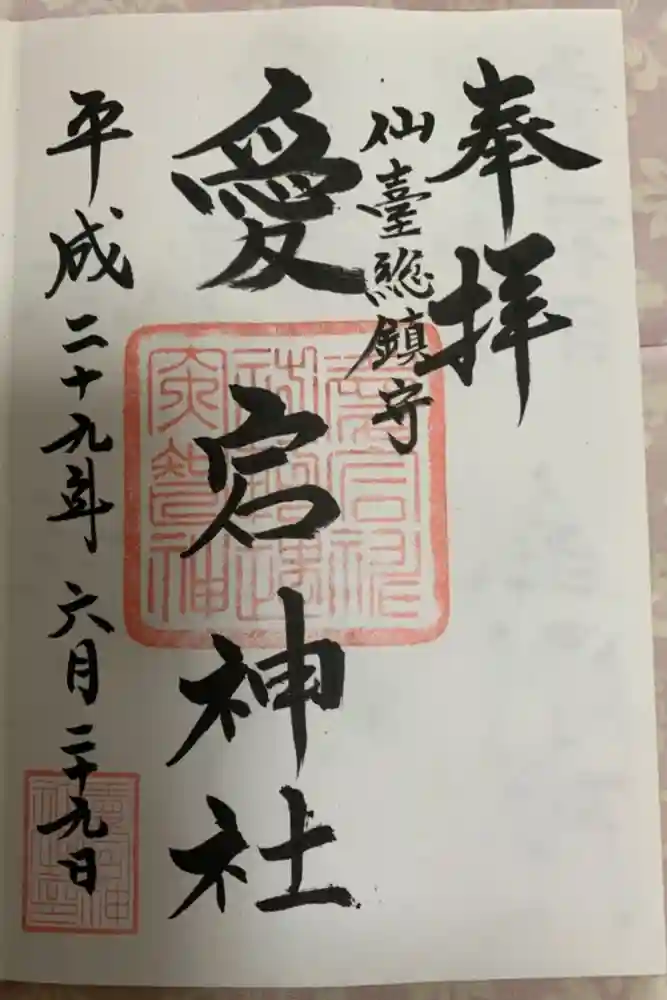 奉拝
仙臺総鎮守
愛宕神社
平成二十九年 六月二十九日